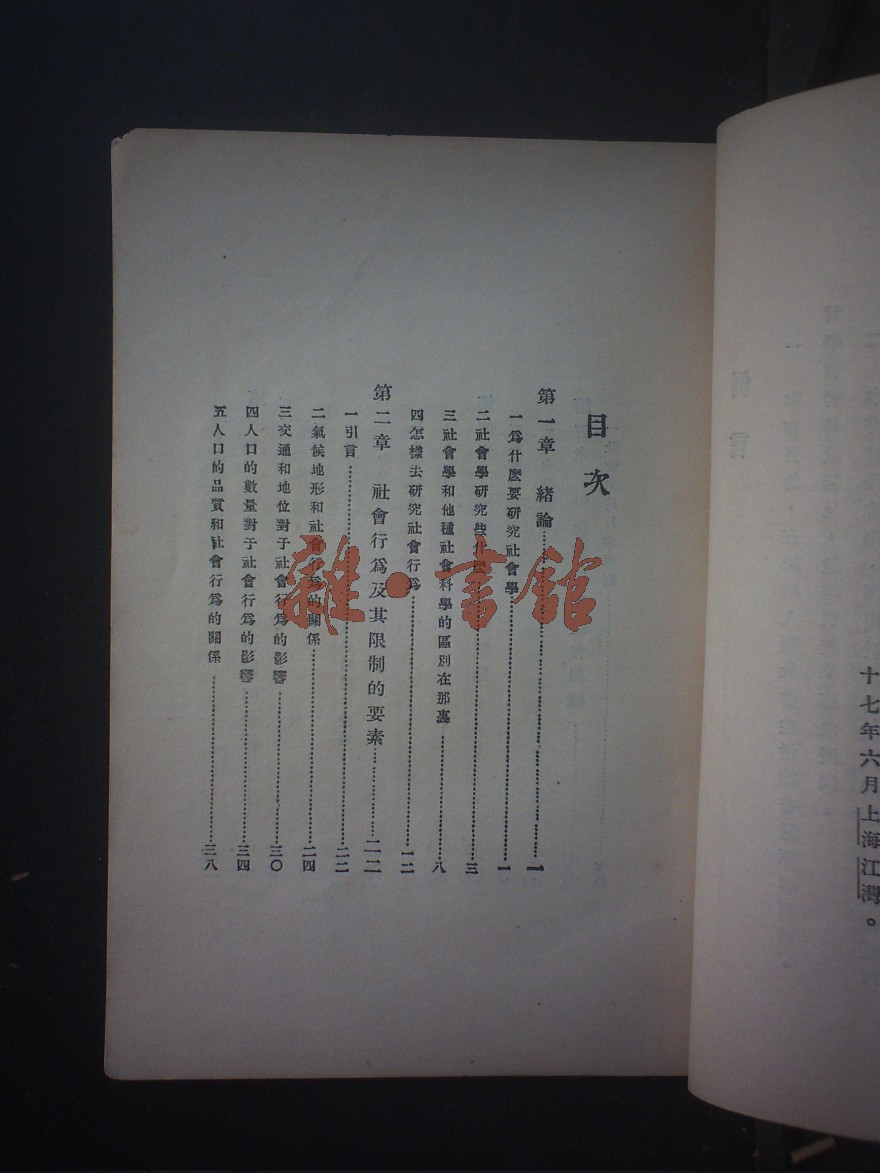 十七年六月上海江灣。
目次
第一章 緒論……一
一爲什麽要研究社會學……一
二社會學研究些什……三
三社會學和他種社會科學的區別在那裏……八
四怎樣去研究社會行爲……一二
第二章 社會行爲及其限制的要素……二二
一引言……二二
二氣候地形和社會行爲的關係……二四
三交通和地位對于社會行爲的影響……三〇
四人口的數量對于社會行爲的影響……三四
五人口的品質和社會行爲的關係……三八
雜·書館